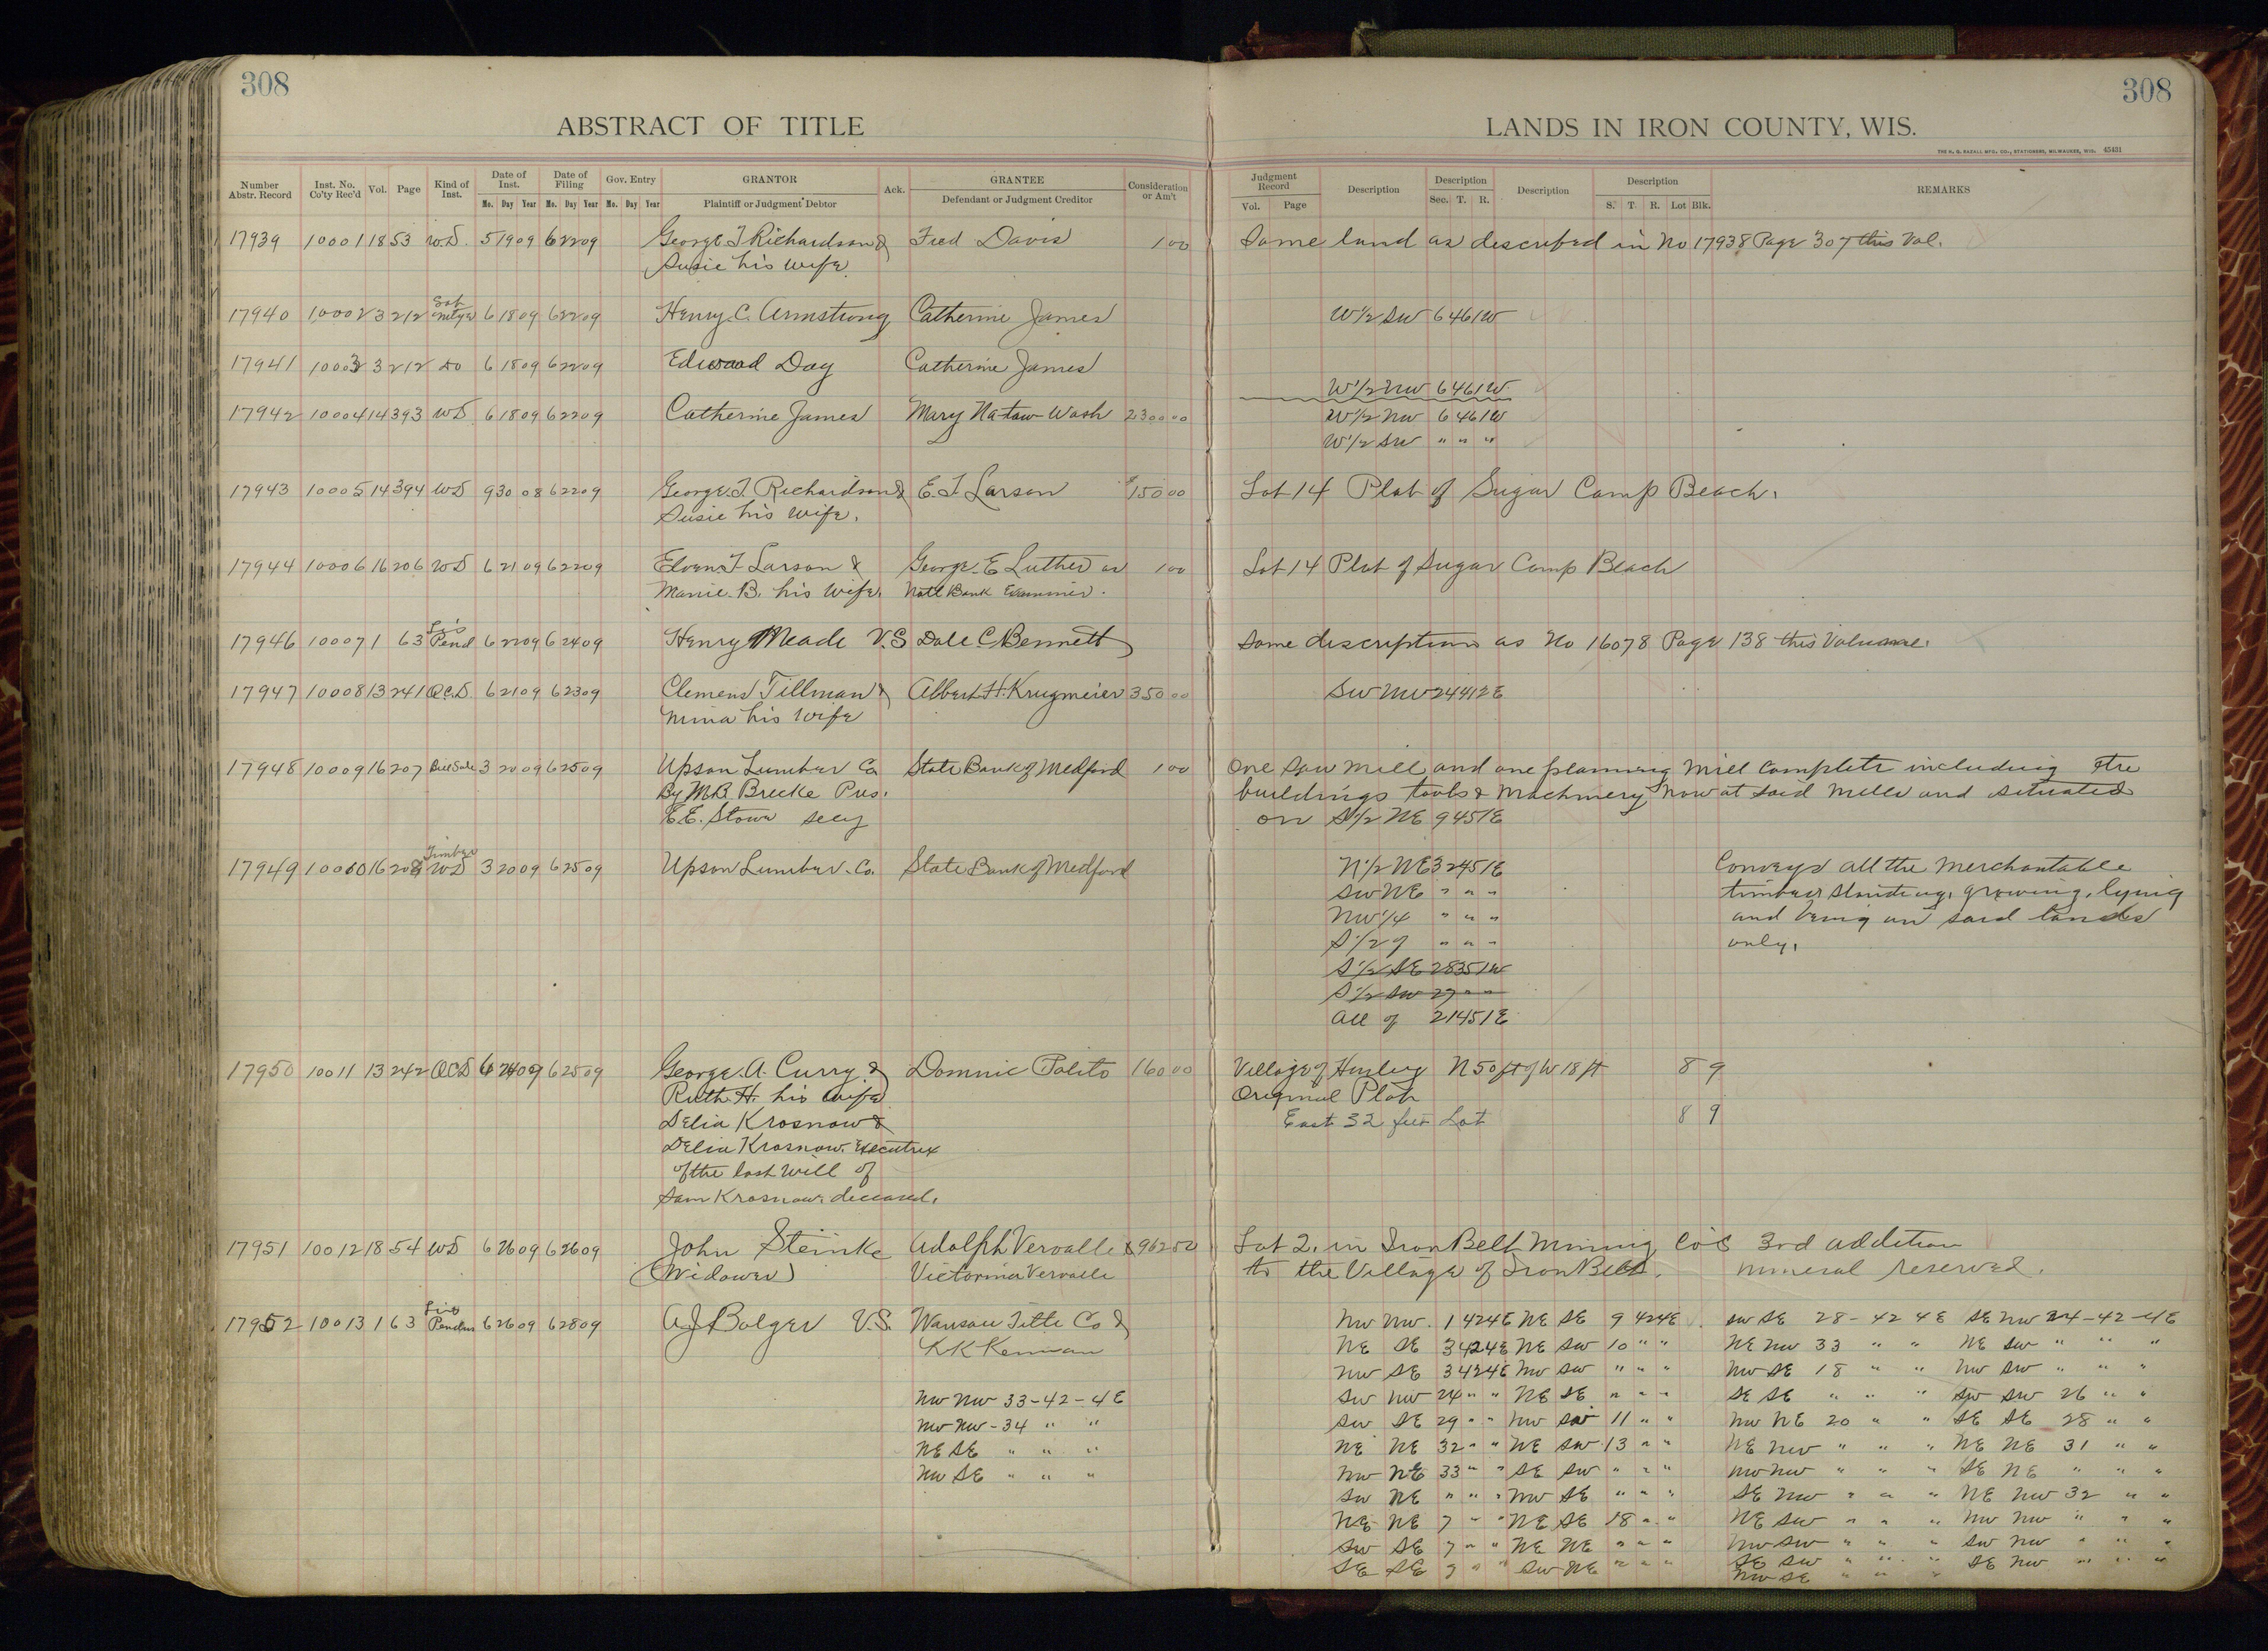 308
308
ABSTRACT OF TITLE
LANDS IN IRON COUNTY, WIS.
THE H. G. RAZALL MFG. CO., STATIONERS, MILWAUKEE, WIS. 45431
Number Abstr. Record Inst. No. Co'ty Rec'd Vol. Page Kind of Inst. Date of Inst. Mo. Day Year Date of Filing Mo. Day Year Gov. Entry Mo. Day Year GRANTOR Plaintiff or Judgment Debtor Ack. GRANTEE Defendant or Judgment Creditor Consideration or Am't
Judgment Record Vol. Page Description Description Sec. T. R. Description Description S. T. R. Lot Blk. REMARKS
17939 10001 18 53 WD. 5 19 09 6 22 09 George T Richardson & Fred Davis 1 00 Same land as described in No 17938 Page 307 this Vol.
Susie his wife.
17940 10002 3 212 Sat Mtge 6 18 09 6 22 09 Henry C. Armstrong Catherine James W 1/2 SW 6 46 1W
17941 10003 3 212 Do 6 18 09 6 22 09 Edward Day Catherine James
W 1/2 NW 6 46 1W
17942 10004 14 393 WD 6 18 09 6 22 09 Catherine James Mary Na-taw-Wash 2300 00 W 1/2 NW 6 46 1W
W 1/2 SW " " "
17943 10005 14 394 WD 9 30 08 6 22 09 George T. Richardson & E. T. Larson $150 00 Lot 14 Plat of Sugar Camp Beach.
Susie his wife.
17944 10006 16 206 WD 6 21 09 6 22 09 Elven T Larson & George E Luther as 1 00 Lot 14 Plat of Sugar Camp Beach
Mamie B. his wife. Natl Bank Examiner.
17946 10007 1 63 Lis Pend 6 22 09 6 24 09 Henry Meade V.S Dale C Bennett Same description as No 16078 Page 138 this Volume.
17947 10008 13 241 Q.C.D. 6 21 09 6 23 09 Clemens Tillman & Albert H. Krugmeier 350 00 SW NW 24 41 2E
Mina his wife
17948 10009 16 207 Bill Sale 3 20 09 6 25 09 Upson Lumber Co State Bank of Medford 1 00 One Saw Mill and one planning Mill Complete including the
By M.B. Brecke Pres. buildings tools & Machinery Now at Said Mills and situated
E.E. Stowe Secy on S 1/2 NE 9 45 1E
17949 10010 16 208 Timber WD 3 20 09 6 25 09 Upson Lumber Co. State Bank of Medford N 1/2 NE 32 45 1E Conveys all the Merchantable
SW NE " " " timber standing, growing, lying
NW 1/4 " " " and being on said lands
S 1/2 of " " " only.
S 1/2 SE 28 35 1W
S 1/2 SW 27 " "
All of 21 45 1E
17950 10011 13 242 QCD 6 24 09 6 25 09 George A. Curry & Domnic Polito 160 00 Village of Hurley N 50 ft of W 18 ft 8 9
Ruth H. his wife Original Plat
Delia Krosnow & East 32 feet Lot 8 9
Delia Krosnow Executrex
of the last will of
Sam Krosnow deceased.
17951 10012 18 54 WD 6 26 09 6 26 09 John Steinke Adolph Vervalle & 962 50 Lot 2. in Iron Belt Mining Co's 3rd addition
(Widower) Victorina Vervalle to the Village of Iron Belt. Mineral reserved.
17952 10013 1 63 Lis Pendens 6 26 09 6 28 09 A J Bolger V.S. Wausau Title Co &
K K Kennan
NW NW 33-42-4E
NW NW - 34 " "
NE SE " " "
NW SE " " "
NW NW. 1 42 4E NE SE 9 42 4E SW SE 28 - 42 4E SE NW 24-42-4E
NE SE 3 42 4E NE SW 10 " " NE NW 33 " " NE SW " " "
NW SE 3 42 4E NW SW " " " NW SE 18 " " NW SW " " "
SW NW 24 " " NE SE " " " SE SE " " " SW SW 26 " "
SW SE 29 " " NW SW 11 " " NW NE 20 " " SE SE 28 " "
NE NE 32 " " NE SW 13 " " NE NW " " " NE NE 31 " "
NW NE 33 " " SE SW " " " NW NW " " " SE NE " " "
SW NE " " " NW SE " " " SE NW " " " NE NW 32 " "
NE NE 7 " " NE SE 18 " " NE SW " " " NW NW " " "
SW SE 7 " " NE NE " " " NW SW " " " SW NW " " "
SE SE 7 " " SW NE " " " SE SW " " " SE NW " " "
NW SE " " "